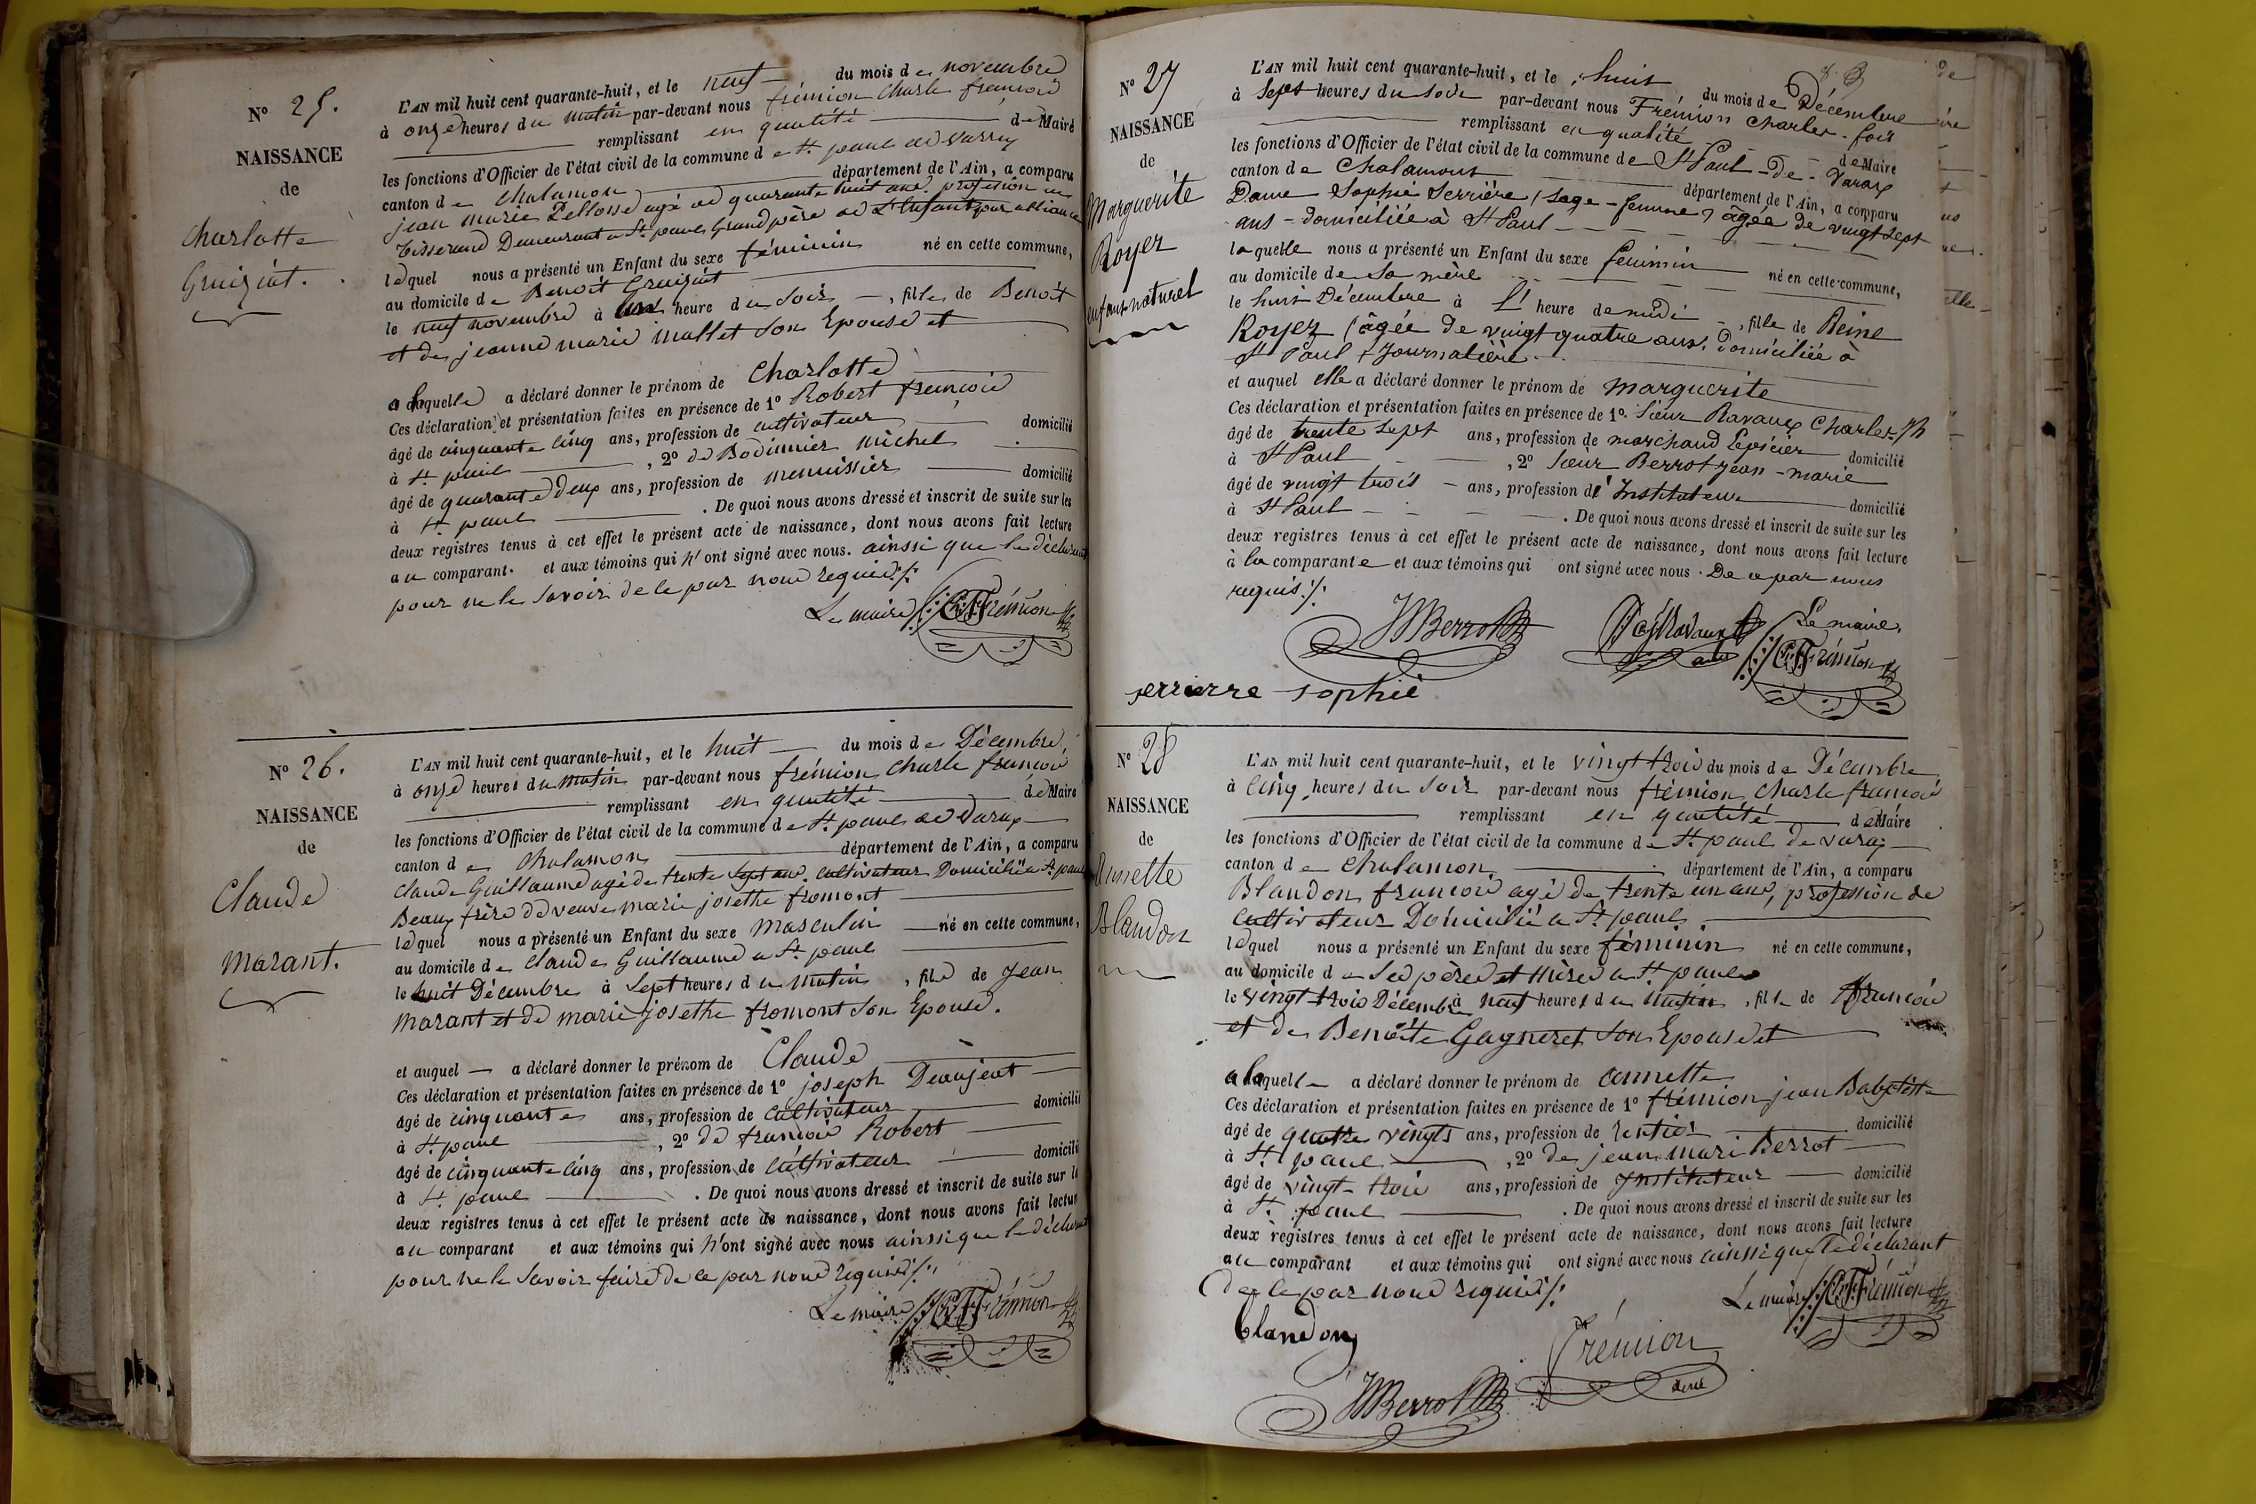 N° 25.
NAISSANCE
de
Charlotte
Gruiziat.
L'AN mil huit cent quarante-huit, et le neuf du mois de novembre
à onze heures du matin par-devant nous frémion Charle francois
remplissant en qualité de Maire
les fonctions d'Officier de l'état civil de la commune de St. paul de Varax
canton de Chalamon département de l'Ain, a comparu
jean marie Pellossé agé de quarante huit ans. profession de
tisserand Demeurant a St. paul Grand père de L'Enfant par alliance
lequel nous a présenté un Enfant du sexe féminin né en cette commune,
au domicile de Benoit Gruiziat
le neuf novembre à une heure du soir, fille de Benoit
et de jeanne marie mallet son Epouse et
a laquelle a déclaré donner le prénom de Charlotte
Ces déclaration et présentation faites en présence de 1° Robert francois
âgé de cinquante cinq ans, profession de cultivateur domicilié
à St. paul, 2° de Bodinnier Michel
âgé de quarante deux ans, profession de menuissier domicilié
à St. paul. De quoi nous avons dressé et inscrit de suite sur les
deux registres tenus à cet effet le présent acte de naissance, dont nous avons fait lecture
au comparant. et aux témoins qui n'ont signé avec nous. ainssi que le déclarant
pour ne le savoir de ce par nous requis./.
Le maire Ch. F. Frémion
N° 26.
NAISSANCE
de
Claude
marant.
L'AN mil huit cent quarante-huit, et le huit du mois de Décembre
à onze heures du matin par-devant nous frémion Charle francois
remplissant en qualité de Maire
les fonctions d'Officier de l'état civil de la commune de St. paul de Varax
canton de Chalamon département de l'Ain, a comparu
Claude Guillaume agé de trente sept ans. cultivateur Domicilié a St. paul
Beau frère de veuve marie josethe fromont
lequel nous a présenté un Enfant du sexe masculin né en cette commune,
au domicile de Claude Guillaume a St. paul
le huit Décembre à sept heures du matin, fils de jean
marant et de marie josethe fromont son Epouse.
et auquel a déclaré donner le prénom de Claude
Ces déclaration et présentation faites en présence de 1° joseph Deaujeat
âgé de cinquante ans, profession de cultivateur domicilié
à St. paul, 2° de francois Robert
âgé de cinquante cinq ans, profession de cultivateur domicilié
à St. paul. De quoi nous avons dressé et inscrit de suite sur les
deux registres tenus à cet effet le présent acte de naissance, dont nous avons fait lecture
au comparant et aux témoins qui n'ont signé avec nous ainssi que le déclarant
pour ne le savoir faire de ce par nous requis./.
Le maire Ch. F. Frémion
N° 27
NAISSANCE
de
Marguerite
Royer
enfant naturel
L'AN mil huit cent quarante-huit, et le huit du mois de Décembre
à Sept heures du soir par-devant nous Frémion Charles-fois
remplissant en qualité de Maire
les fonctions d'Officier de l'état civil de la commune de St Paul-de-Varax
canton de Chalamont département de l'Ain, a comparu
Dame Sophie Serrière (sage-femme) âgée de vingt sept
ans - domiciliée à St Paul
laquelle nous a présenté un Enfant du sexe féminin né en cette commune,
au domicile de sa mère
le huit Décembre à l' heure de midi, fille de Reine
Royer (âgée de vingt quatre ans, domiciliée à
St Paul & journalière
et auquel elle a déclaré donner le prénom de Marguerite
Ces déclaration et présentation faites en présence de 1°. Sieur Ravaux Charles Jh
âgé de trente sept ans, profession de marchand Epicier domicilié
à St Paul, 2° sieur Berrot jean-marie
âgé de vingt trois ans, profession d'Instituteur domicilié
à St Paul. De quoi nous avons dressé et inscrit de suite sur les
deux registres tenus à cet effet le présent acte de naissance, dont nous avons fait lecture
à la comparante et aux témoins qui ont signé avec nous. De ce par nous
requis./.
JM Berrot Ravaux Le maire.
Ch. F. Frémion
serrierre sophie
N° 28
NAISSANCE
de
Annette
Blandon
L'AN mil huit cent quarante-huit, et le vingt trois du mois de Décembre
à cinq heures du soir par-devant nous frémion Charle francois
remplissant en qualité de Maire
les fonctions d'Officier de l'état civil de la commune de St. paul de varax
canton de Chalamon département de l'Ain, a comparu
Blandon francois agé de trente un ans, profession de
cultivateur Domicilié a St. paul
lequel nous a présenté un Enfant du sexe féminin né en cette commune,
au domicile de ses père et mère a St. paul
le vingt trois Décembre à neuf heures du matin, fille de francois
et de Benoite Gagneret son Epouse et
a laquelle a déclaré donner le prénom de annette
Ces déclaration et présentation faites en présence de 1° frémion jean Babtiste
âgé de quatre vingts ans, profession de rentier domicilié
à St. paul, 2° de jean mari Berrot
âgé de vingt-trois ans, profession de Instituteur domicilié
à St. paul. De quoi nous avons dressé et inscrit de suite sur les
deux registres tenus à cet effet le présent acte de naissance, dont nous avons fait lecture
au comparant et aux témoins qui ont signé avec nous ainssi que le déclarant
de ce par nous requis./.
Le maire Ch. F. Frémion
blandon
frémion
JM Berrot